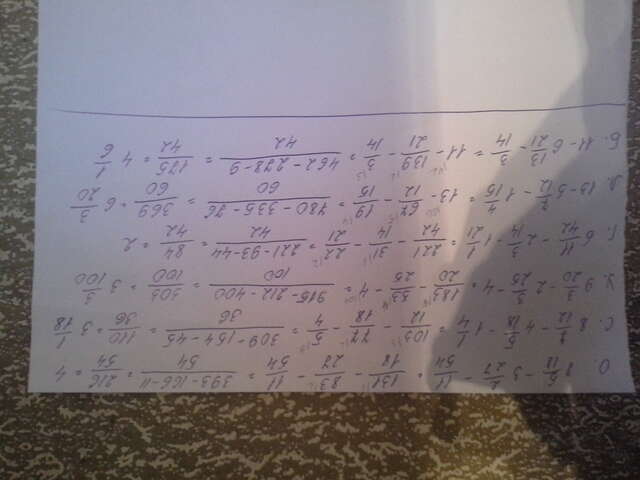 О. 8 5/18 - 3 2/27 - 11/54 = 131/18 - 83/27 - 11/54 = 393-166-11/54 = 216/54 = 4
С. 8 7/12 - 4 5/18 - 1 1/4 = 103/12 - 77/18 - 5/4 = 309-154-45/36 = 110/36 = 3 1/18
У. 9 3/20 - 2 3/25 - 4 = 183/20 - 53/25 - 4 = 915-212-400/100 = 303/100 = 3 3/100
Г. 6 11/42 - 2 3/14 - 1 1/21 = 221/42 - 31/14 - 22/21 = 221-93-44/42 = 84/42 = 2
Л. 13 - 5 7/12 - 1 4/15 = 13 - 67/12 - 19/15 = 780-335-76/60 = 369/60 = 6 3/20
Б. 11 - 6 13/21 - 3/14 = 11 - 139/21 - 3/14 = 462-278-9/42 = 175/42 = 4 1/6